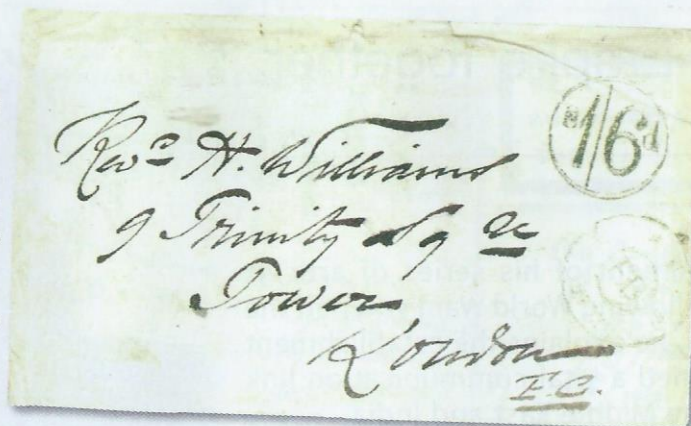 Revd H. Williams
9 Trinity Sqre
Tower
London
E.C.
1/6d